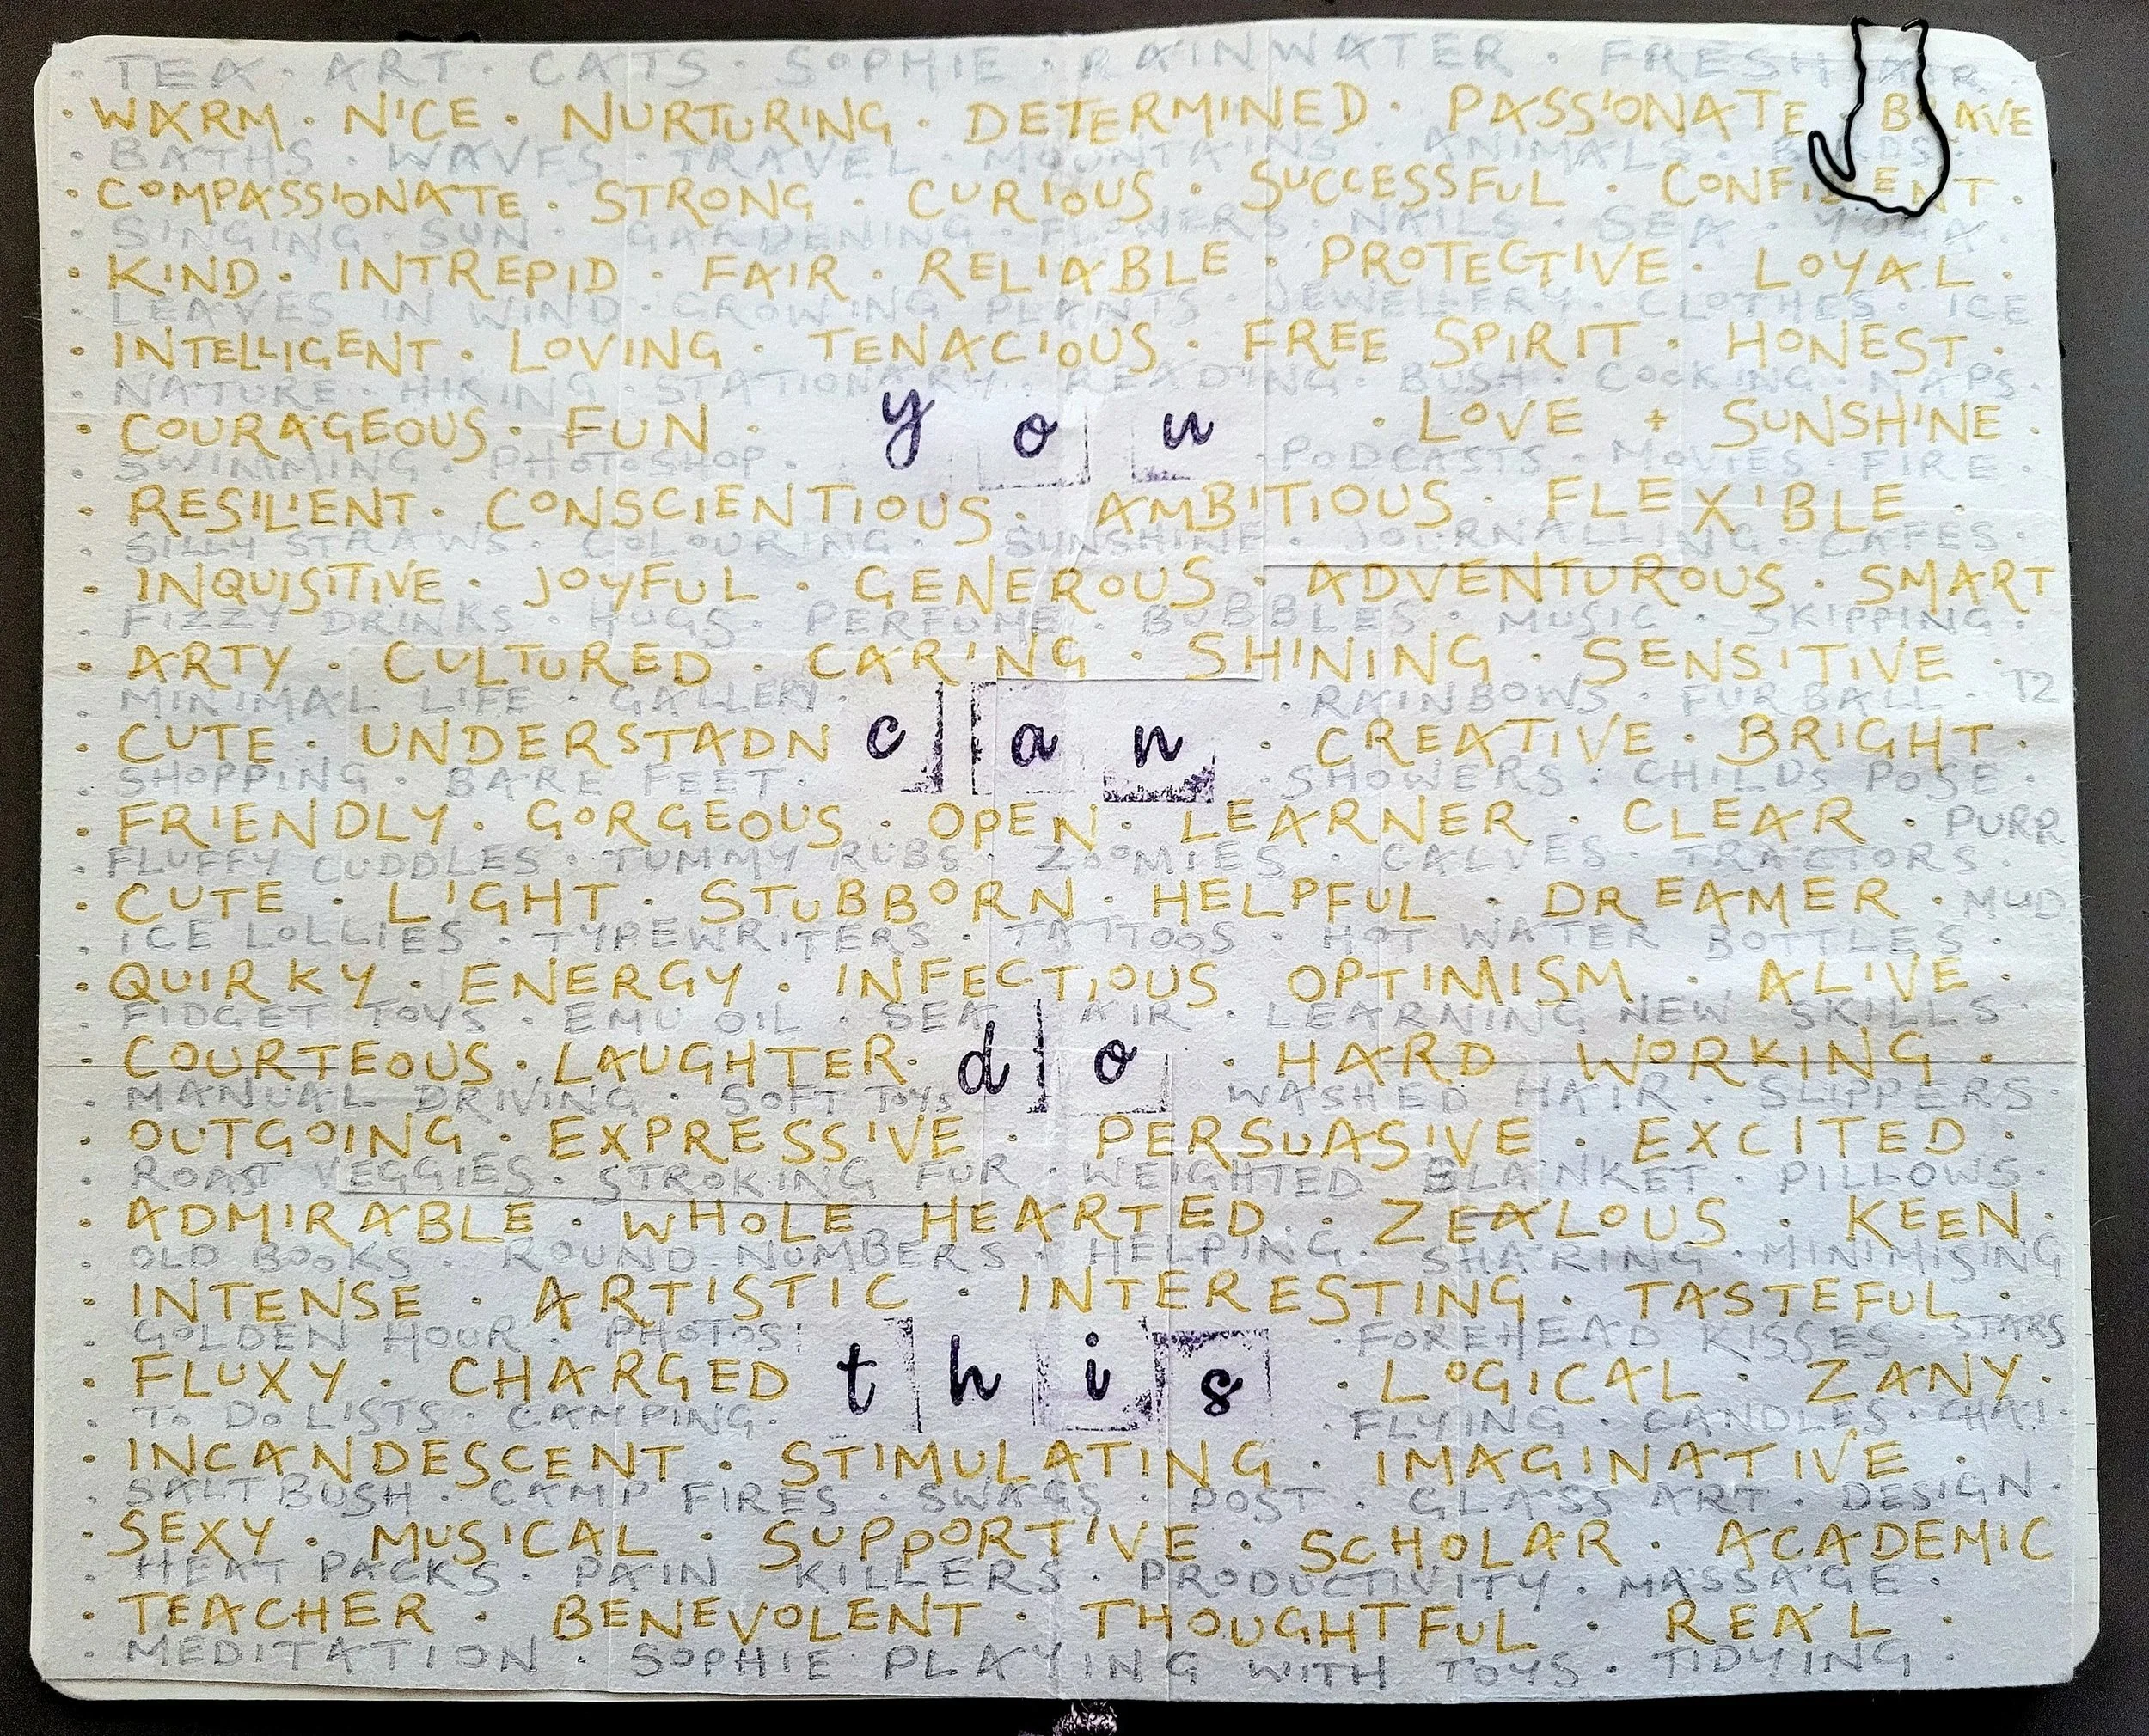 · TEA · ART · CATS · SOPHIE · RAINWATER · FRESH AIR ·
· WARM · NICE · NURTURING · DETERMINED · PASSIONATE · BRAVE
· BATHS · WAVES · TRAVEL · MOUNTAINS · ANIMALS · BIRDS ·
· COMPASSIONATE · STRONG · CURIOUS · SUCCESSFUL · CONFIDENT ·
· SINGING · SUN · GARDENING · FLOWERS · NAILS · SEA · YOGA ·
· KIND · INTREPID · FAIR · RELIABLE · PROTECTIVE · LOYAL ·
· LEAVES IN WIND · GROWING PLANTS · JEWELLERY · CLOTHES · ICE
· INTELLIGENT · LOVING · TENACIOUS · FREE SPIRIT · HONEST ·
· NATURE · HIKING · STATIONARY · READING · BUSH · COOKING · NAPS ·
· COURAGEOUS · FUN · you · LOVE + SUNSHINE ·
· SWIMMING · PHOTOSHOP · · PODCASTS · MOVIES · FIRE ·
· RESILIENT · CONSCIENTIOUS · AMBITIOUS · FLEXIBLE ·
· SILLY STRAWS · COLOURING · SUNSHINE · JOURNALLING · CAFES ·
· INQUISITIVE · JOYFUL · GENEROUS · ADVENTUROUS · SMART
· FIZZY DRINKS · HUGS · PERFUME · BUBBLES · MUSIC · SKIPPING ·
· ARTY · CULTURED · CARING · SHINING · SENSITIVE ·
· MINIMAL LIFE · GALLERY · · RAINBOWS · FURBALL · T2
· CUTE · UNDERSTADN can · CREATIVE · BRIGHT ·
· SHOPPING · BARE FEET · · SHOWERS · CHILDS POSE ·
· FRIENDLY · GORGEOUS · OPEN · LEARNER · CLEAR · PURR
· FLUFFY CUDDLES · TUMMY RUBS · ZOOMIES · CALVES · TRACTORS ·
· CUTE · LIGHT · STUBBORN · HELPFUL · DREAMER · MUD
· ICE LOLLIES · TYPEWRITERS · TATTOOS · HOT WATER BOTTLES ·
· QUIRKY · ENERGY · INFECTIOUS OPTIMISM · ALIVE ·
· FIDGET TOYS · EMU OIL · SEA AIR · LEARNING NEW SKILLS ·
· COURTEOUS · LAUGHTER · do · HARD WORKING ·
· MANUAL DRIVING · SOFT TOYS WASHED HAIR · SLIPPERS ·
· OUTGOING · EXPRESSIVE · PERSUASIVE · EXCITED ·
· ROAST VEGGIES · STROKING FUR · WEIGHTED BLANKET · PILLOWS ·
· ADMIRABLE · WHOLE HEARTED · ZEALOUS · KEEN ·
· OLD BOOKS · ROUND NUMBERS · HELPING · SHARING · MINIMISING
· INTENSE · ARTISTIC · INTERESTING · TASTEFUL ·
· GOLDEN HOUR · PHOTOS · · FOREHEAD KISSES · STARS
· FLUXY · CHARGED this · LOGICAL · ZANY ·
· TO DO LISTS · CAMPING · · FLYING · CANDLES · CHAI ·
· INCANDESCENT · STIMULATING · IMAGINATIVE ·
· SALTBUSH · CAMP FIRES · SWAGS · POST · GLASS ART · DESIGN ·
· SEXY · MUSICAL · SUPPORTIVE · SCHOLAR · ACADEMIC
· HEAT PACKS · PAIN KILLERS · PRODUCTIVITY · MASSAGE ·
· TEACHER · BENEVOLENT · THOUGHTFUL · REAL ·
· MEDITATION · SOPHIE PLAYING WITH TOYS · TIDYING ·